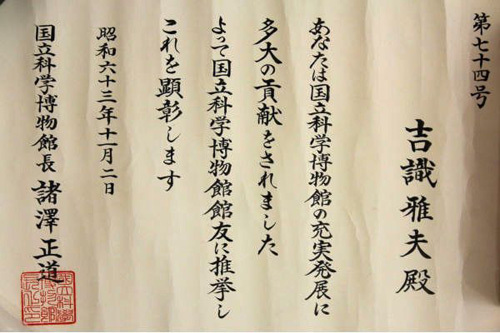 第七十四号
吉識雅夫殿
あなたは国立科学博物館の充実発展に
多大の貢献をされました
よって国立科学博物館館友に推挙し
これを顕彰します
昭和六十三年十一月二日
国立科学博物館長 諸澤正道